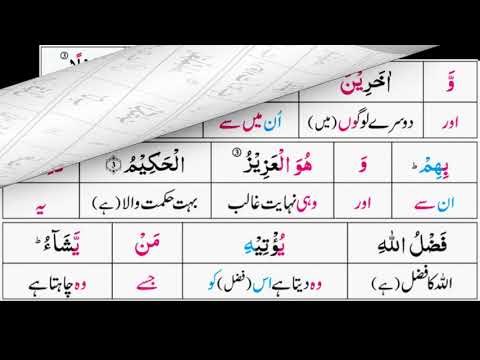 وَّ اٰخَرِيْنَ
اور دوسرے لوگوں (میں) اُن میں سے
بِهِمْ ؕ وَ هُوَ الْعَزِيْزُ الْحَكِيْمُ ۳
ان سے اور وہی نہایت غالب بہت حکمت والا (ہے) یہ
فَضْلُ اللهِ يُؤْتِيْهِ مَنْ يَّشَآءُ ؕ
اللہ کا فضل (ہے) وہ دیتا ہے اس (فضل) کو جسے وہ چاہتا ہے